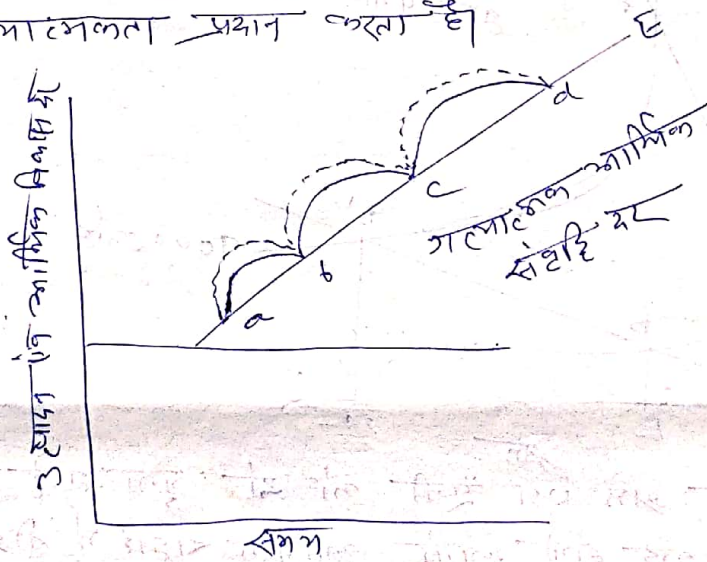 त्यात्मकता प्रदान करता है।
E
d
c
b
a
गत्यात्मक आर्थिक
संवृद्धि दर
उत्पादन एवं आर्थिक विकास दर
समय